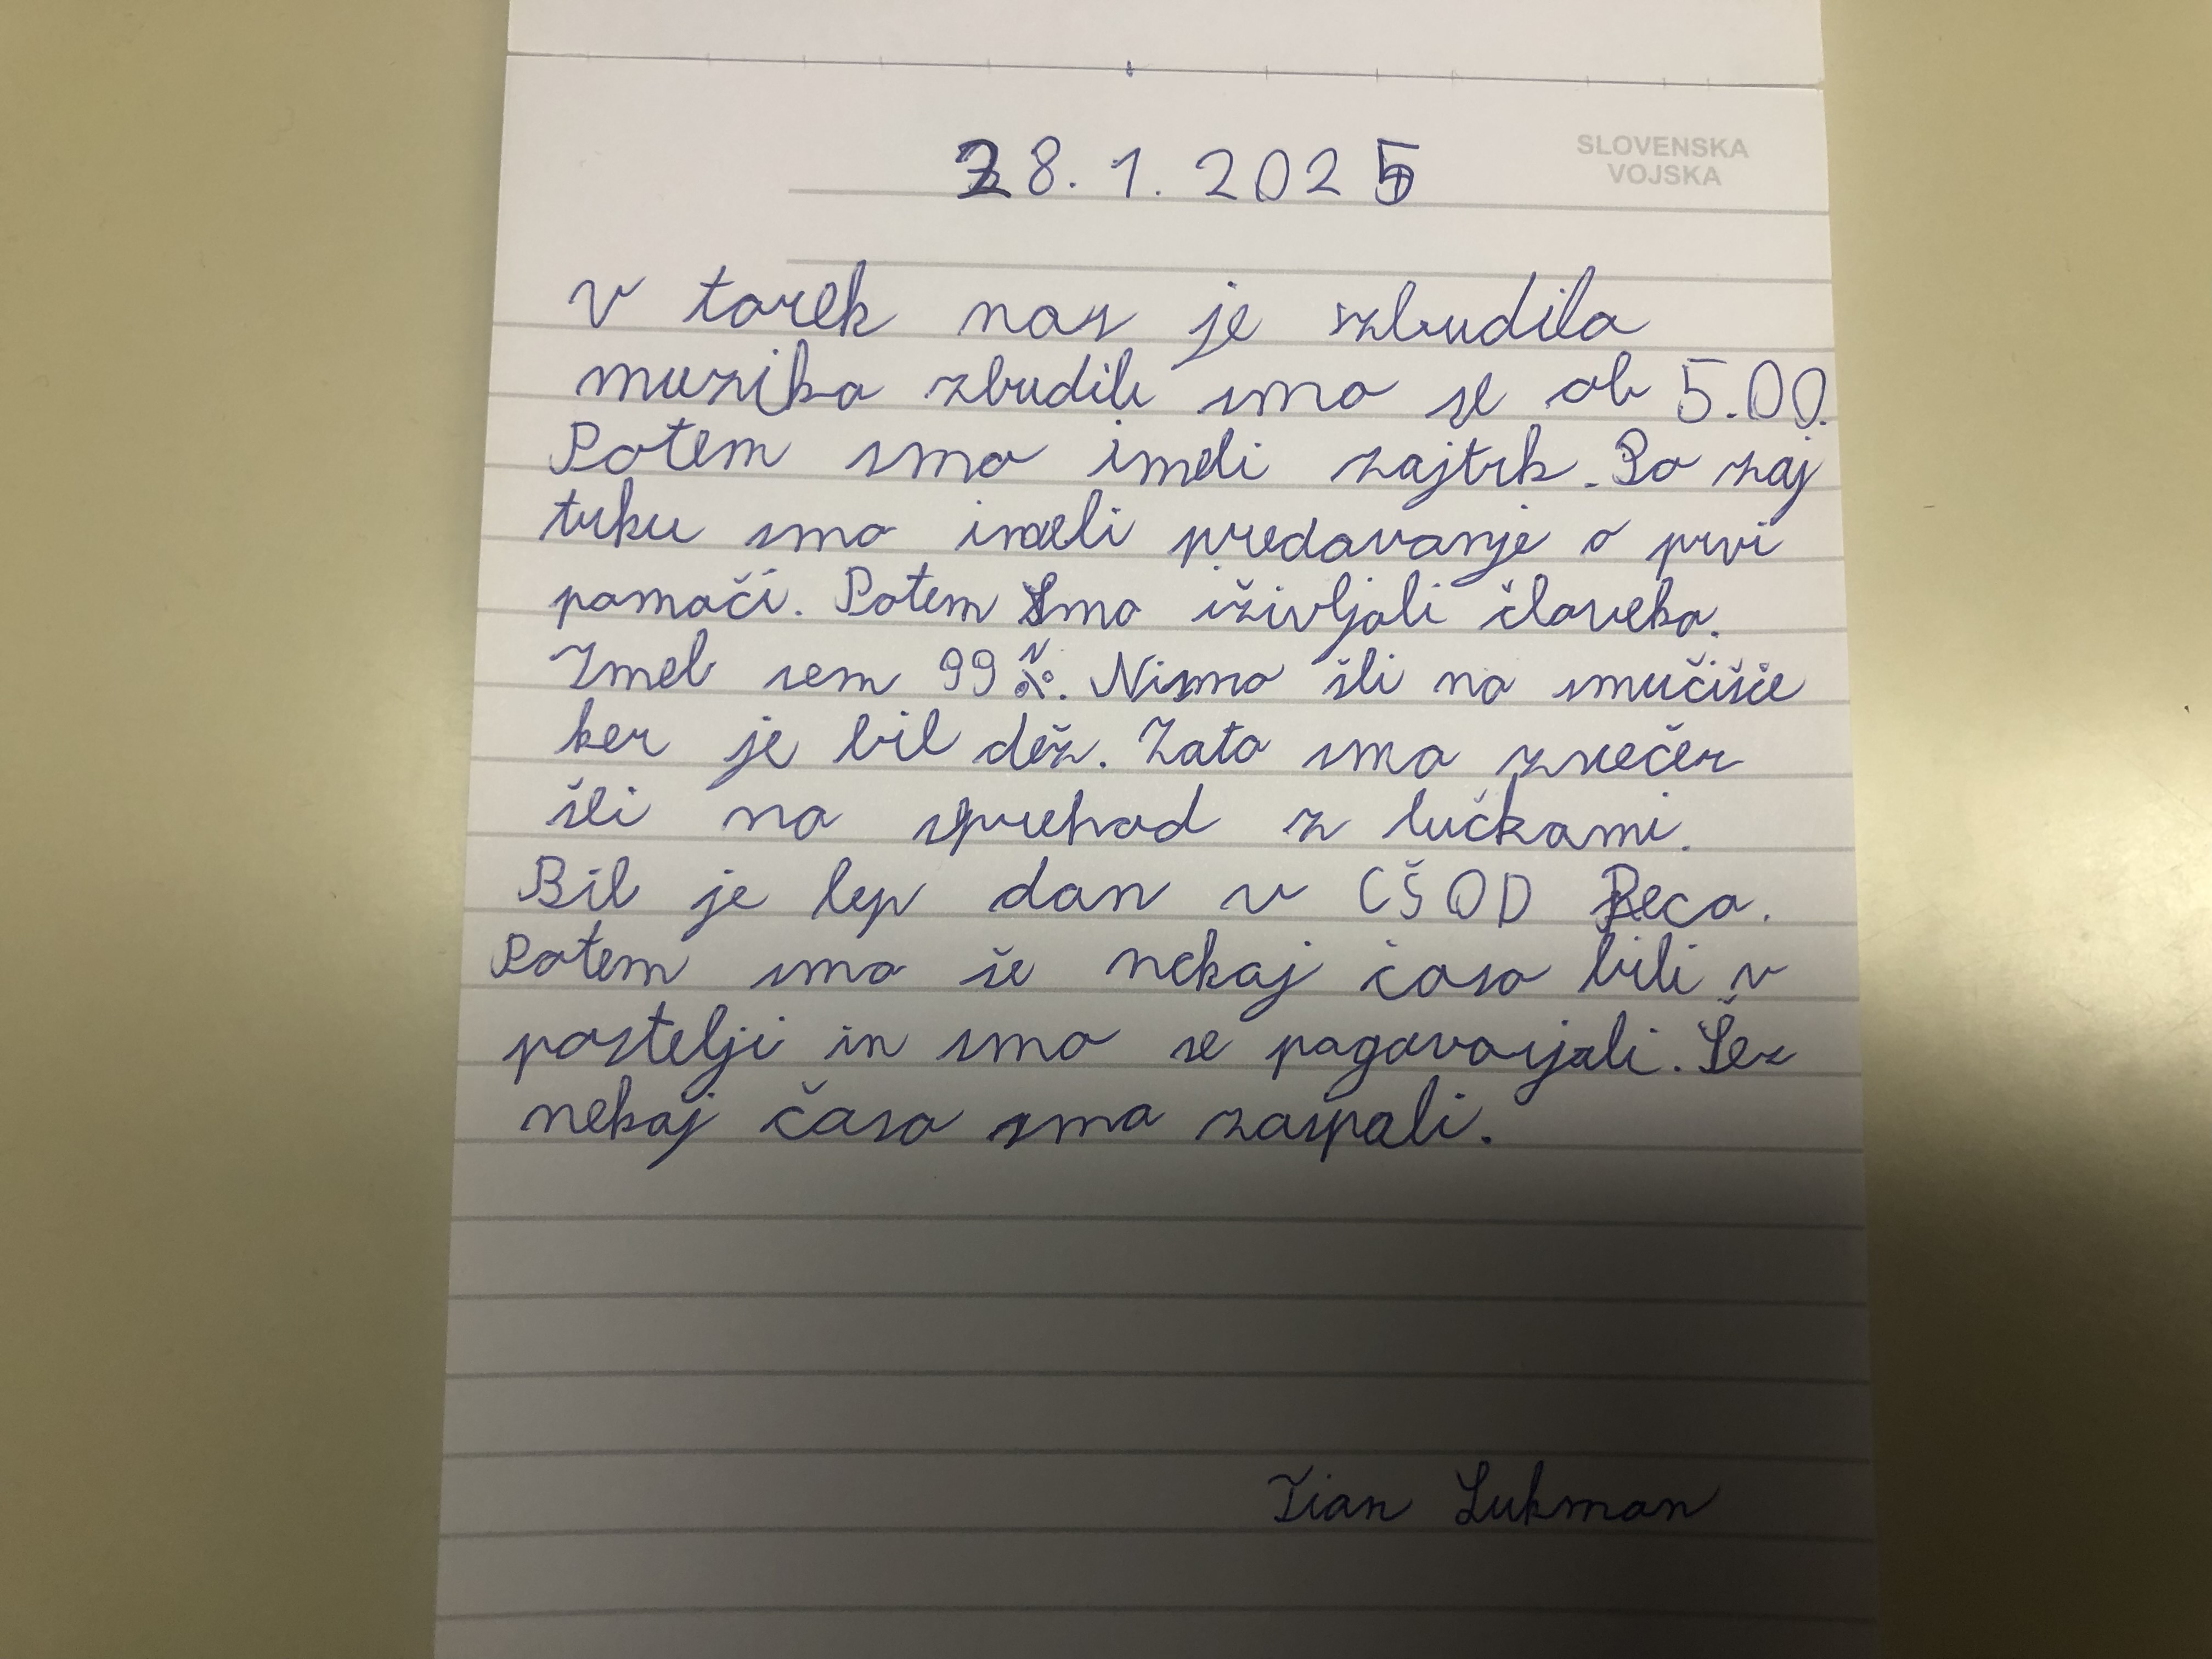 28. 1. 2025
SLOVENSKA
VOJSKA
v torek nas je zbudila
muzika zbudili smo se ob 5.00.
Potem smo imeli zajtrk. Po zaj
trku smo imeli predavanje o prvi
pomoči. Potem smo iživljali človeka.
Imel sem 99 %. Nismo šli na smučišče
ker je bil dež. Zato smo zvečer
šli na sprehod z lučkami.
Bil je lep dan v CŠOD Peca.
Potem smo še nekaj časa bili v
postelji in smo se pogovorjali. Šez
nekaj časa smo zaspali.
Tian Lukman